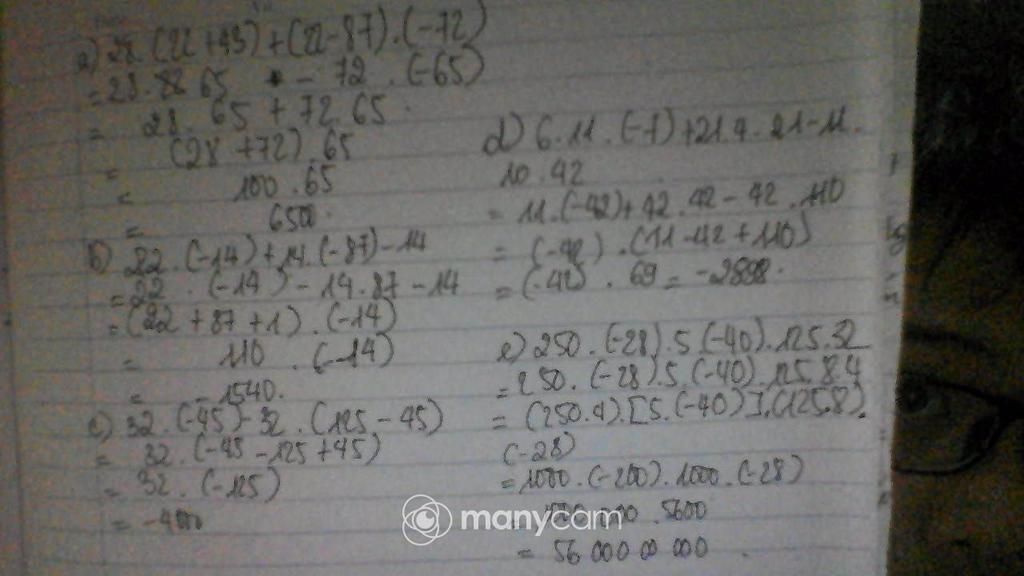 a) 28.(22+43)+(22-87).(-72)
= 28.88 65 - 72.(-65)
= 28.65+72.65
= (28+72).65
= 100.65
= 6500.
b) 22.(-14)+14.(-87)-14
= 22.(-14)-14.87-14
= (22+87+1).(-14)
= 110.(-14)
= -1540.
c) 32.(-45)-32.(125-45)
= 32.(-45-125+45)
= 32.(-125)
= -4000
d) 6.11.(-7)+21.4.21-11.
10.42
= 11.(-42)+42.42-42.110
= (-42).(11-42+110)
= (-42).69=-2898.
e) 250.(-28).5.(-40).125.32
= 250.(-28).5.(-40).125.8.4
= (250.4).[5.(-40)].(125.8).
(-28)
= 1000.(-200).1000.(-28)
= 000.5600
= 56 000 00 000
manycam